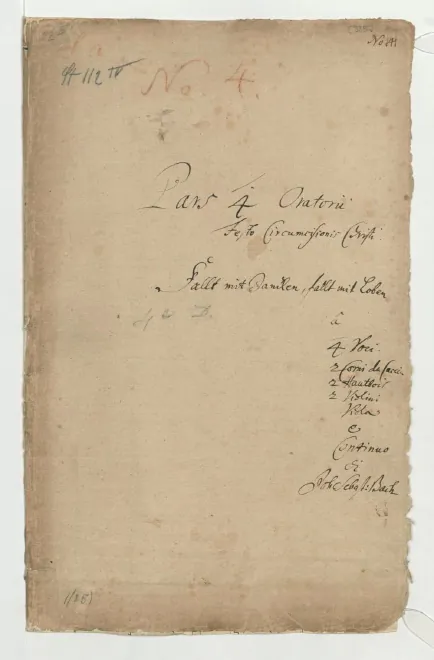 No. III
St 112 IV
No. 4.
Pars 4 Oratorii
Festo Circumcisionis Christi.
Fallt mit Dancken, fallt mit Loben
a
4 Voci.
2 Corni da Caccia
2 Hautbois
2 Violini
Viola
e
Continuo
di
Joh: Sebast: Bach